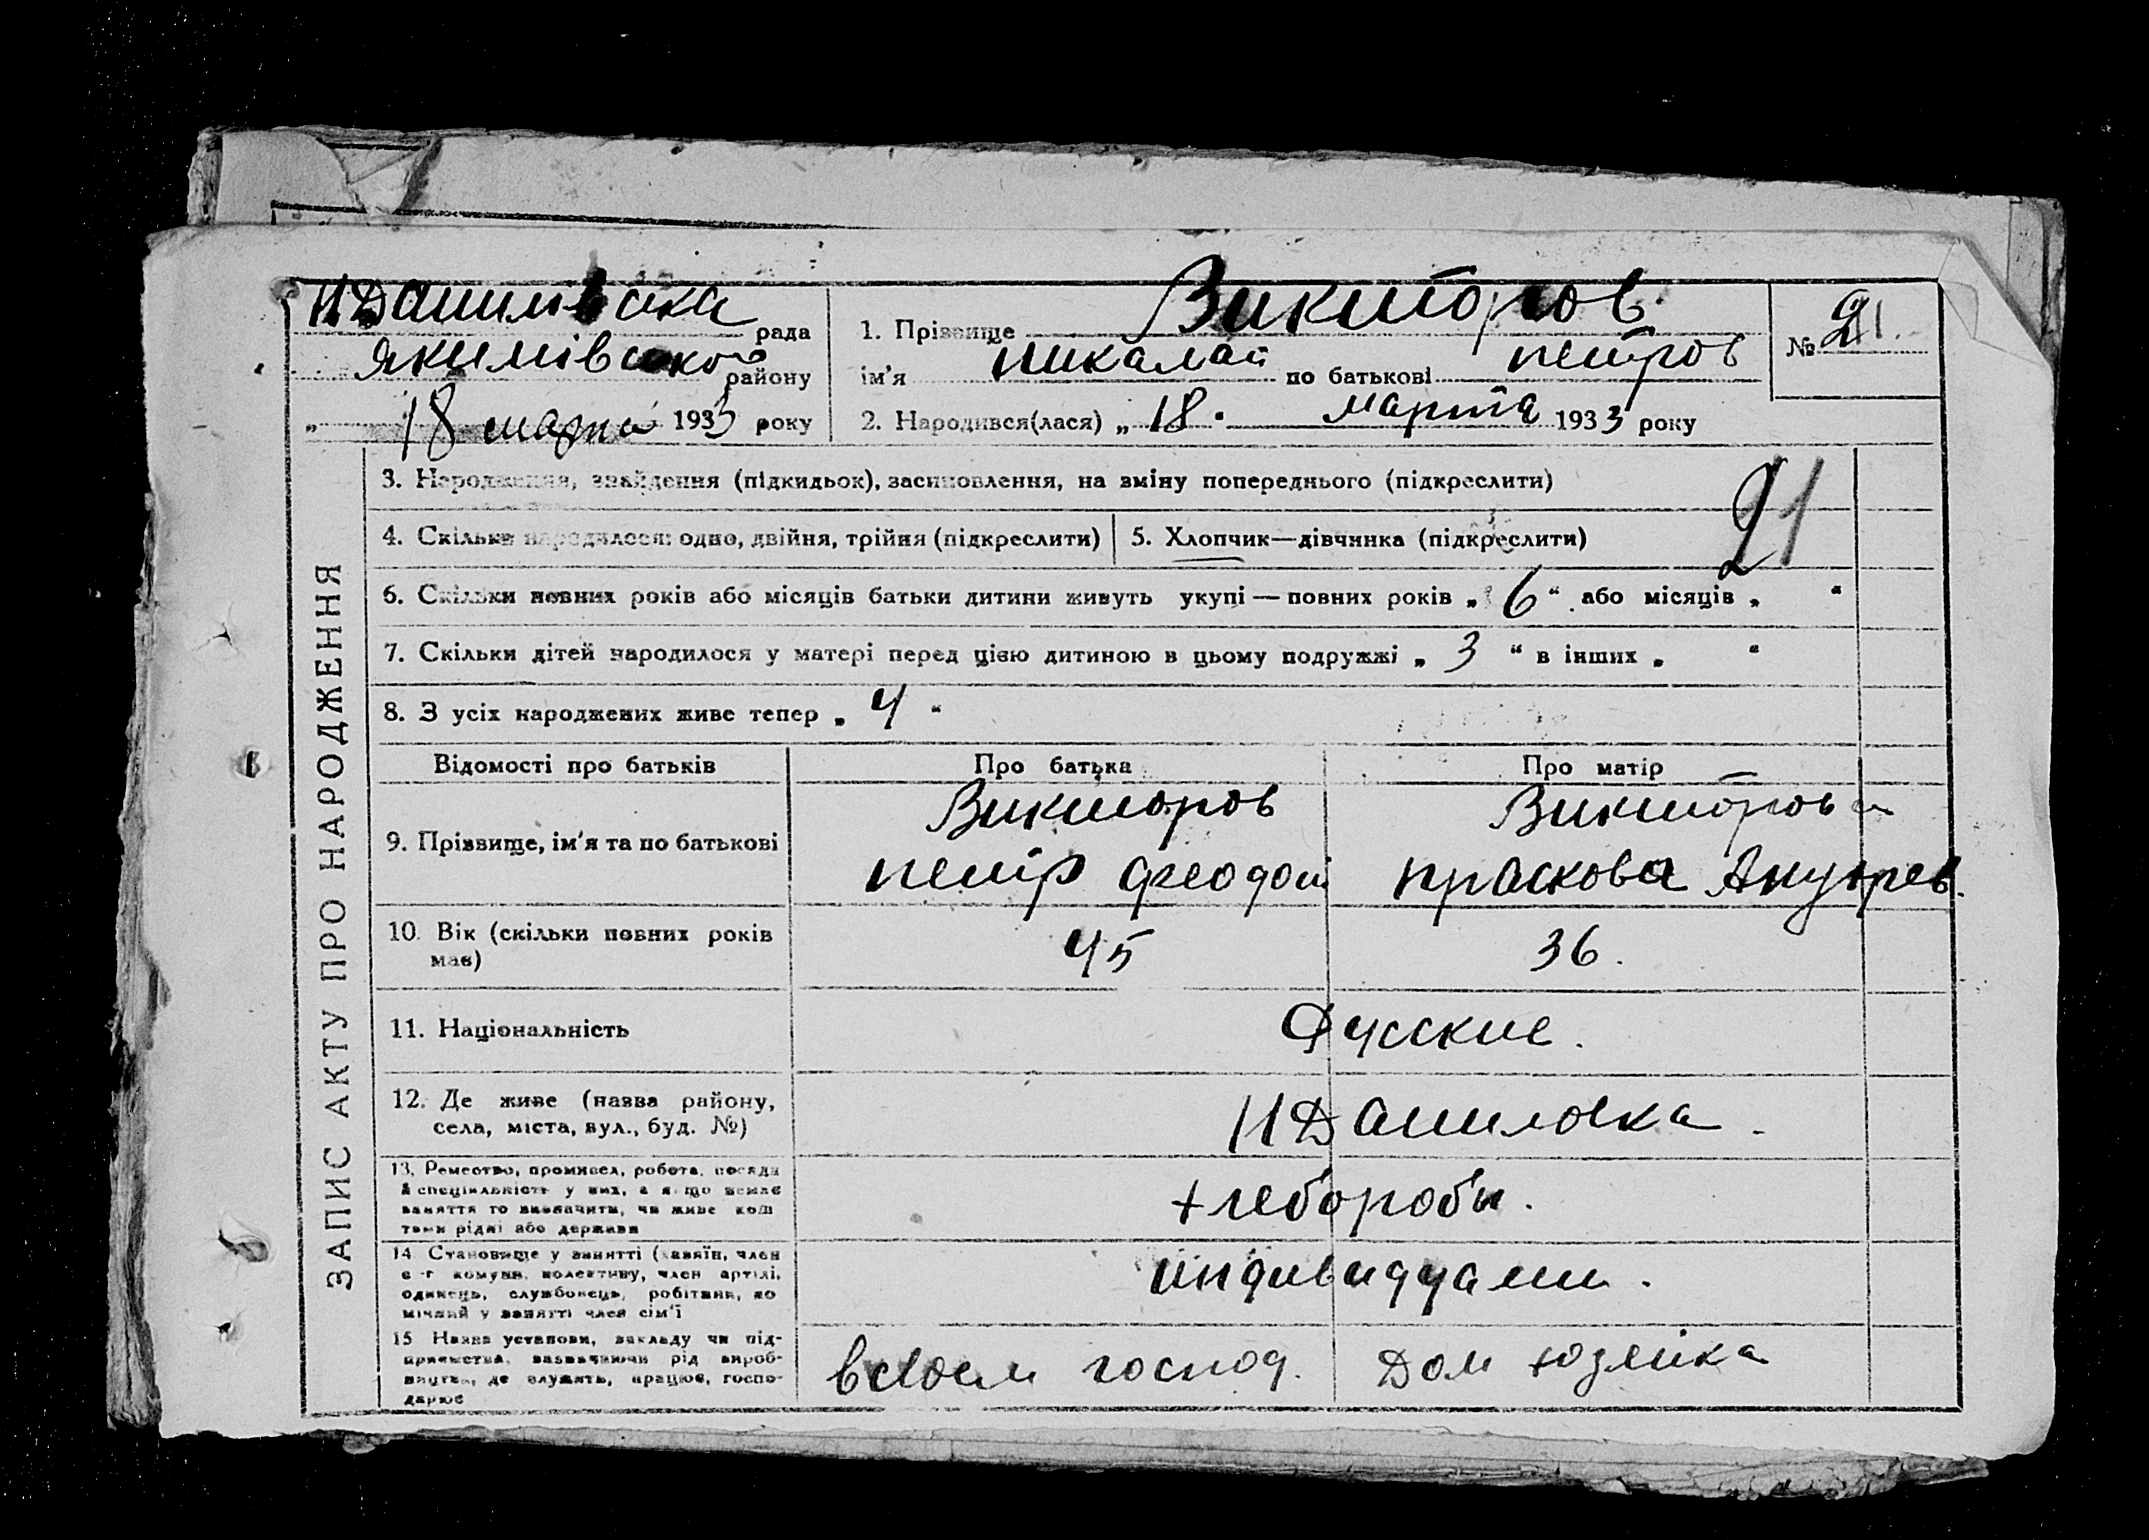 НДанилівска рада
Якимівского району
„ 18 марта 1933 року
1. Прізвище Викторов
ім'я Николай по батькові Петров
№ 21
2. Народився(лася) „ 18 . марта 1933 року
ЗАПИС АКТУ ПРО НАРОДЖЕННЯ
3. Народження, знайдення (підкидьок), засиновлення, на зміну попереднього (підкреслити)
21
4. Скільки народилося: одно, двійня, трійня (підкреслити) 5. Хлопчик—дівчинка (підкреслити)
6. Скільки повних років або місяців батьки дитини живуть укупі — повних років „ 6 “ або місяців „ “
7. Скільки дітей народилося у матері перед цією дитиною в цьому подружжі „ 3 “ в інших „ “
8. З усіх народжених живе тепер „ 4 “
Відомості про батьків Про батька Про матір
9. Прізвище, ім'я та по батькові
Викторов Викторова
Петр Феодот Прасковя Андрев.
10. Вік (скільки повних років має)
45 36.
11. Національність Русские.
12. Де живе (назва району,
села, міста, вул., буд. №)
НДаниловка.
13. Ремество, промисел, робота, посада
й спеціяльність у них, а якщо немає
заняття то визначити, чи живе кош
тами рідні або держави
хлебороби.
14. Становище у занятті (хазяїн, член
с-г комуни, колективу, член артілі,
одинець, службовець, робітник, по
мічний у занятті член сім'ї
индивидуали.
15. Назва установи, закладу чи під-
приємства, зазначаючи рід вироб-
ництва, де служить, працює, госпо-
дарює
в своем господ. Дом хозяйка